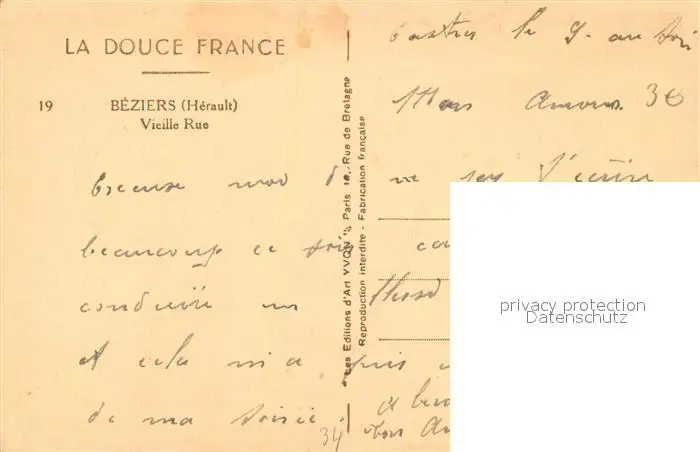 LA DOUCE FRANCE
19 BÉZIERS (Hérault)
Vieille Rue
Les Editions d'Art YVON, Paris 10, Rue de Bretagne
Reproduction interdite - Fabrication française
castres le 9. au soir
Mon Amour. 36
Excuse moi de ne pas t'écrire
beaucoup ce soir
conduire un
Et cela m'a pris
de ma soirée.
A
bon
34
privacy protection
Datenschutz